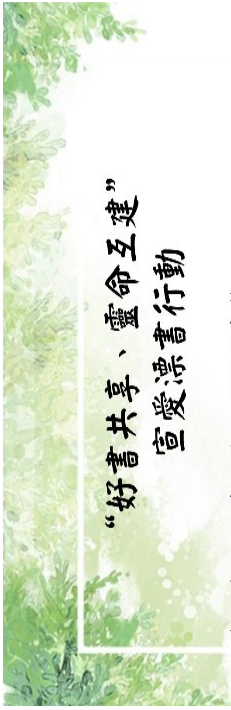 “好書共享、靈命互建”
宣愛漂書行動